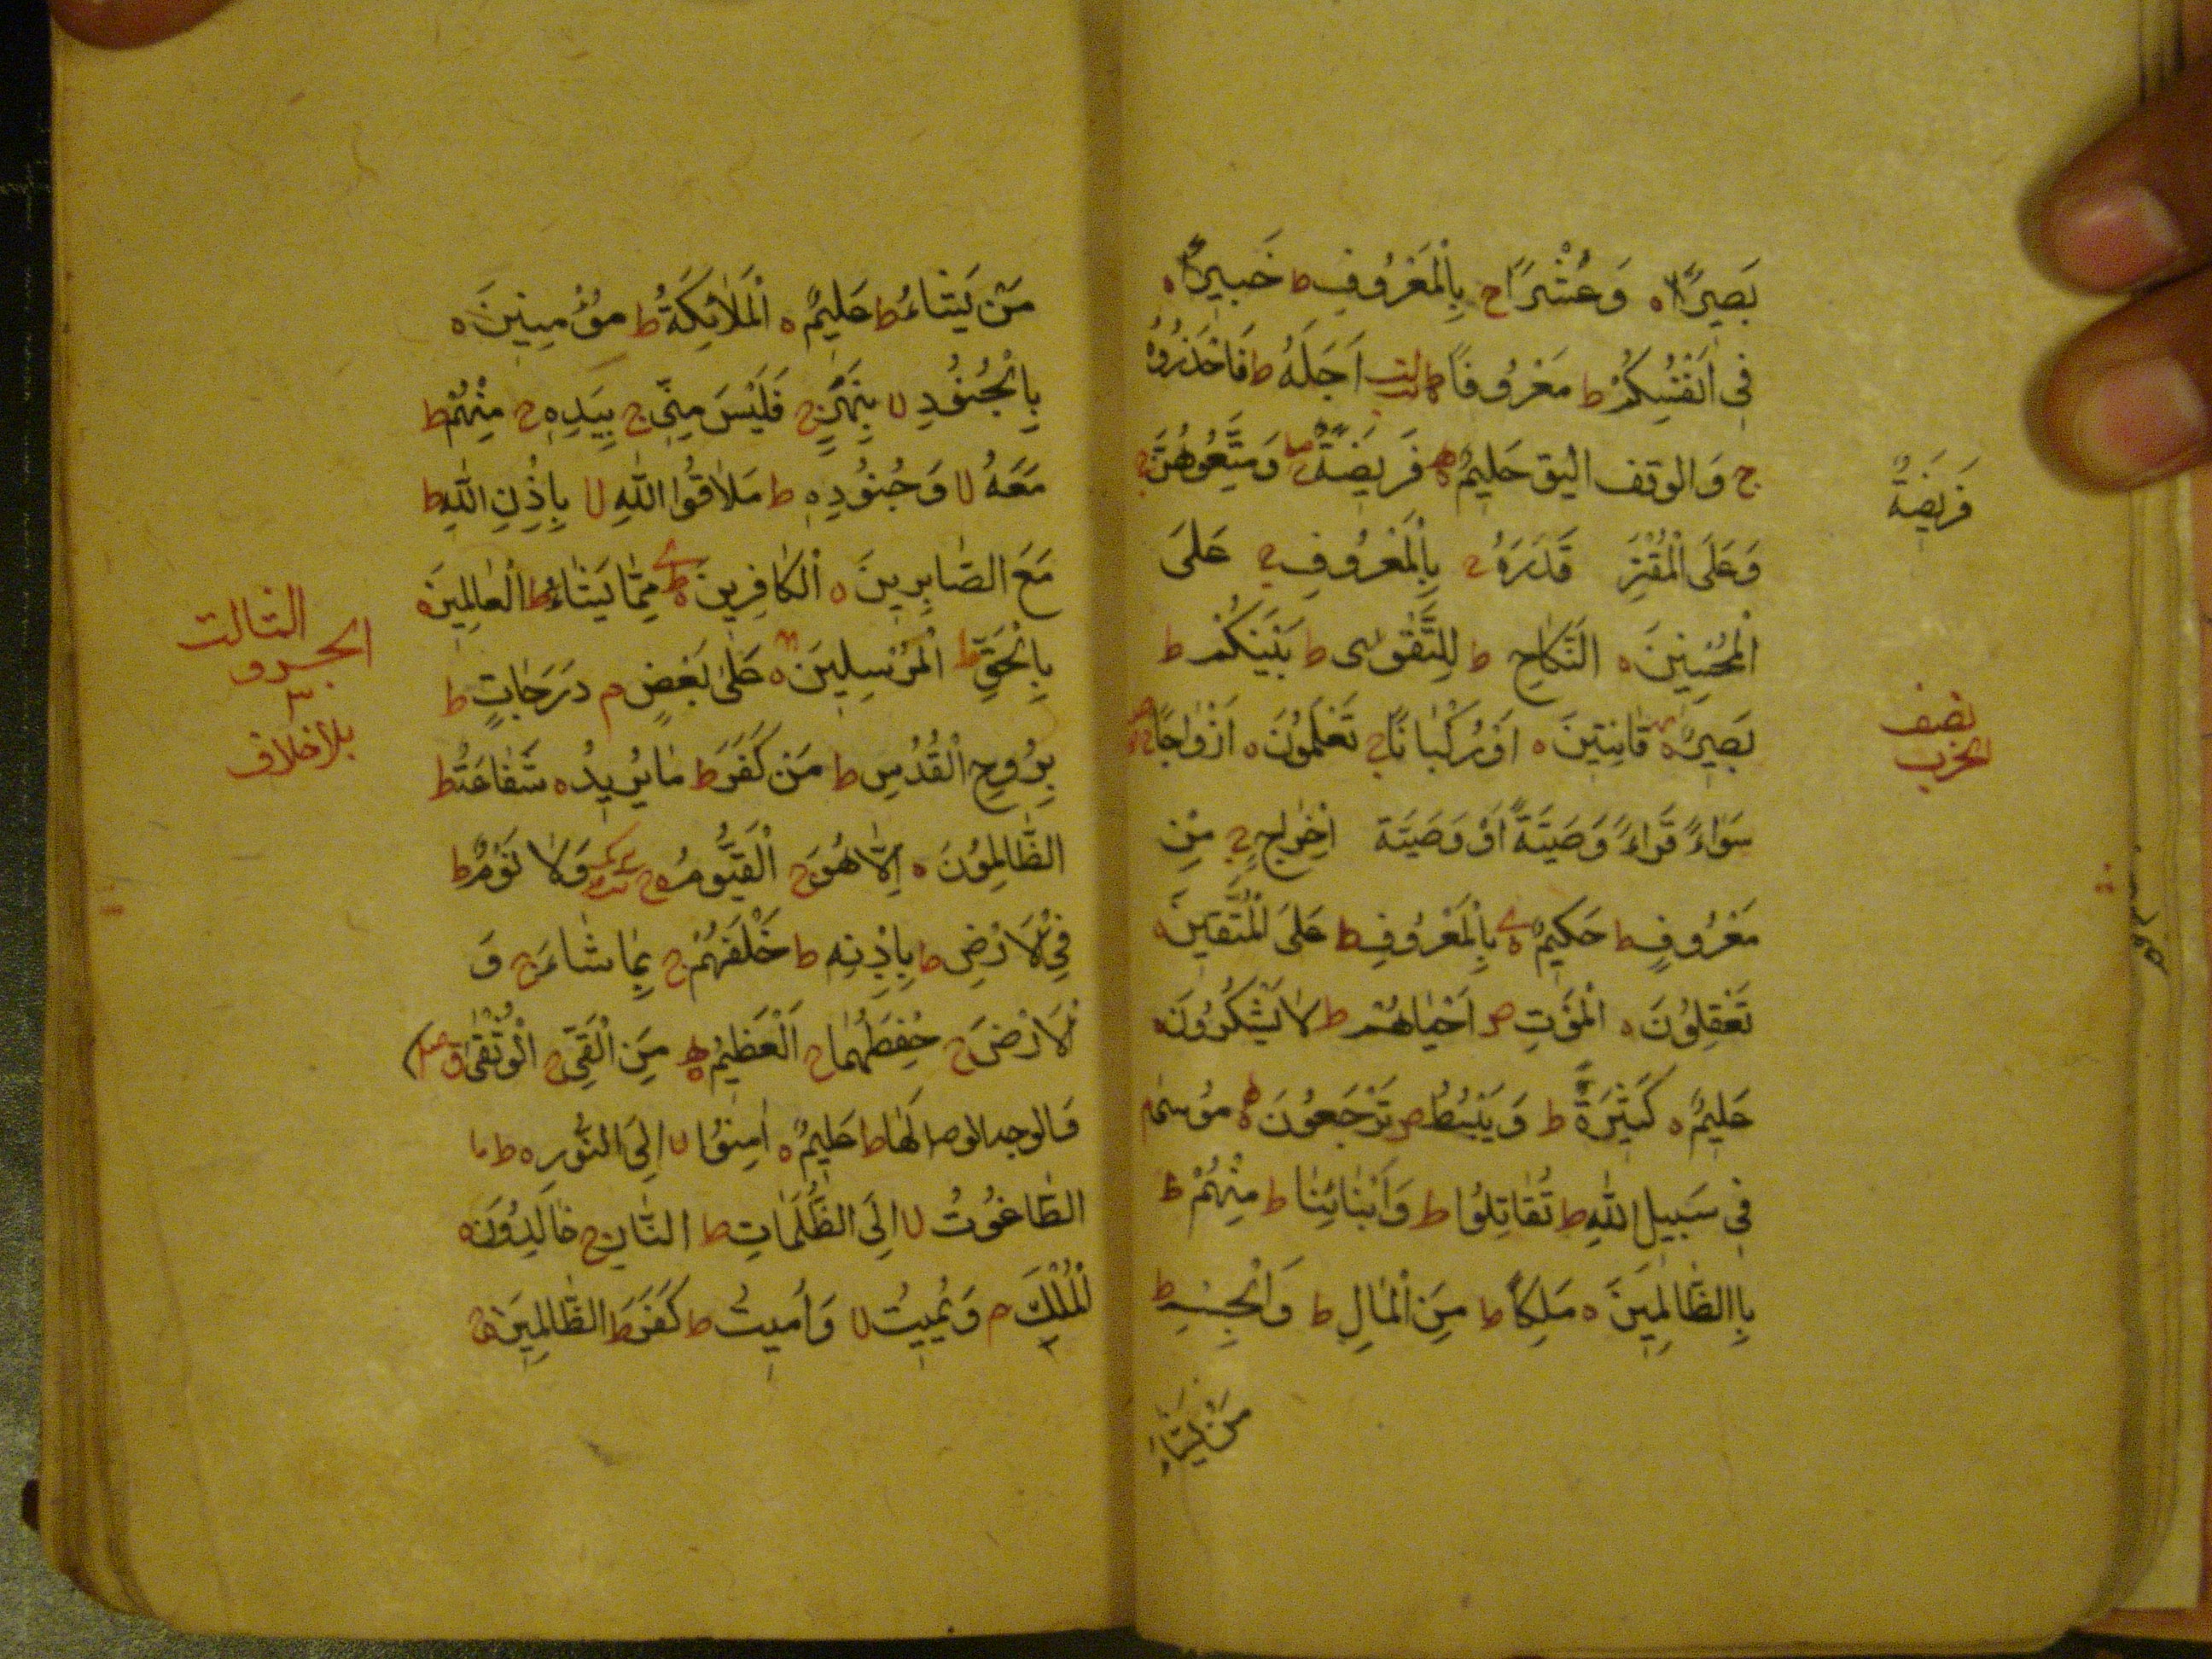 بَصِيرًا ه وَعَشْرًا ج بِالْمَعْرُوفِ ط خَبِيرٌ ه
فِى اَنْفُسِكُمْ ط مَعْرُوفًا ط اَجَلَهُ ط فَاحْذَرُوهُ
ج وَالوقف اليق حَلِيمٌ ه فَرِيضَةً وَمَتِّعُوهُنَّ ج
وَعَلَى الْمُقْتِرِ قَدَرَهُ ج بِالْمَعْرُوفِ ج عَلَى
الْمُحْسِنِينَ ه النِّكَاحِ ط لِلتَّقْوٰى ط بَيْنَكُمْ ط
بَصِيرٌ ه قَانِتِينَ ه اَوْ رُكْبَانًا ج تَعْلَمُونَ ه اَزْوَاجًا
سَوَاءً قَرَاءَ وَصِيَّةً اَوْ وَصِيَّة اِخْرَاجٍ ج مِن
مَعْرُوفٍ ط حَكِيمٌ ه بِالْمَعْرُوفِ ط عَلَى الْمُتَّقِينَ ه
تَعْقِلُونَ ه الْمَوْتِ ص اَحْيَاهُمْ ط لَا يَشْكُرُونَ ه
عَلِيمٌ ه كَثِيرَةً ط وَيَبْسُطُ ص تُرْجَعُونَ ه مُوسٰى م
فِى سَبِيلِ اللّٰهِ ط تُقَاتِلُوا ط وَاَبْنَائِنَا ط مِنْهُمْ ط
بِالظَّالِمِينَ ه مَلِكًا ط مِنَ الْمَالِ ط وَالْجِسْمِ ط
مَنْ يَشَاءُ
فَرِيضَةً
نصف
الحزب
مَنْ يَشَاءُ ط عَلِيمٌ ه الْمَلَائِكَةُ ط مُؤْمِنِينَ ه
بِالْجُنُودِ لا بِنَهَرٍ ج فَلَيْسَ مِنِّى ج بِيَدِهِ ج مِنْهُمْ ط
مَعَهُ لا وَجُنُودِهِ ط مُلَاقُوا اللّٰهِ لا بِاِذْنِ اللّٰهِ ط
مَعَ الصَّابِرِينَ ه الْكَافِرِينَ ط مِمَّا يَشَاءُ ط الْعَالَمِينَ ه
بِالْحَقِّ ط الْمُرْسَلِينَ ه عَلَى بَعْضٍ م دَرَجَاتٍ ط
بِرُوحِ الْقُدُسِ ط مَن كَفَرَ ط مَا يُرِيدُ ه شَفَاعَةٌ ط
الظَّالِمُونَ ه اِلَّا هُوَ ج الْقَيُّومُ وَلَا نَوْمٌ ط
فِى الْاَرْضِ ط بِاِذْنِه ط خَلْفَهُمْ ج بِمَا شَاءَ ج وَ
الْاَرْضَ ج حِفْظُهُمَا ج الْعَظِيمُ ه مِنَ الْغَىِّ ج الْوُثْقٰى ق
لَهَا ط عَلِيمٌ ه اٰمَنُوا لا اِلَى النُّورِ ه ط
الطَّاغُوتُ لا اِلَى الظُّلُمَاتِ ط النَّارِ ج خَالِدُونَ ه
الْمُلْكَ م وَيُمِيتُ لا وَاُمِيتُ ط كَفَرَ ط الظَّالِمِينَ ه
الثالث
الجزو
٣
بلاخلاف